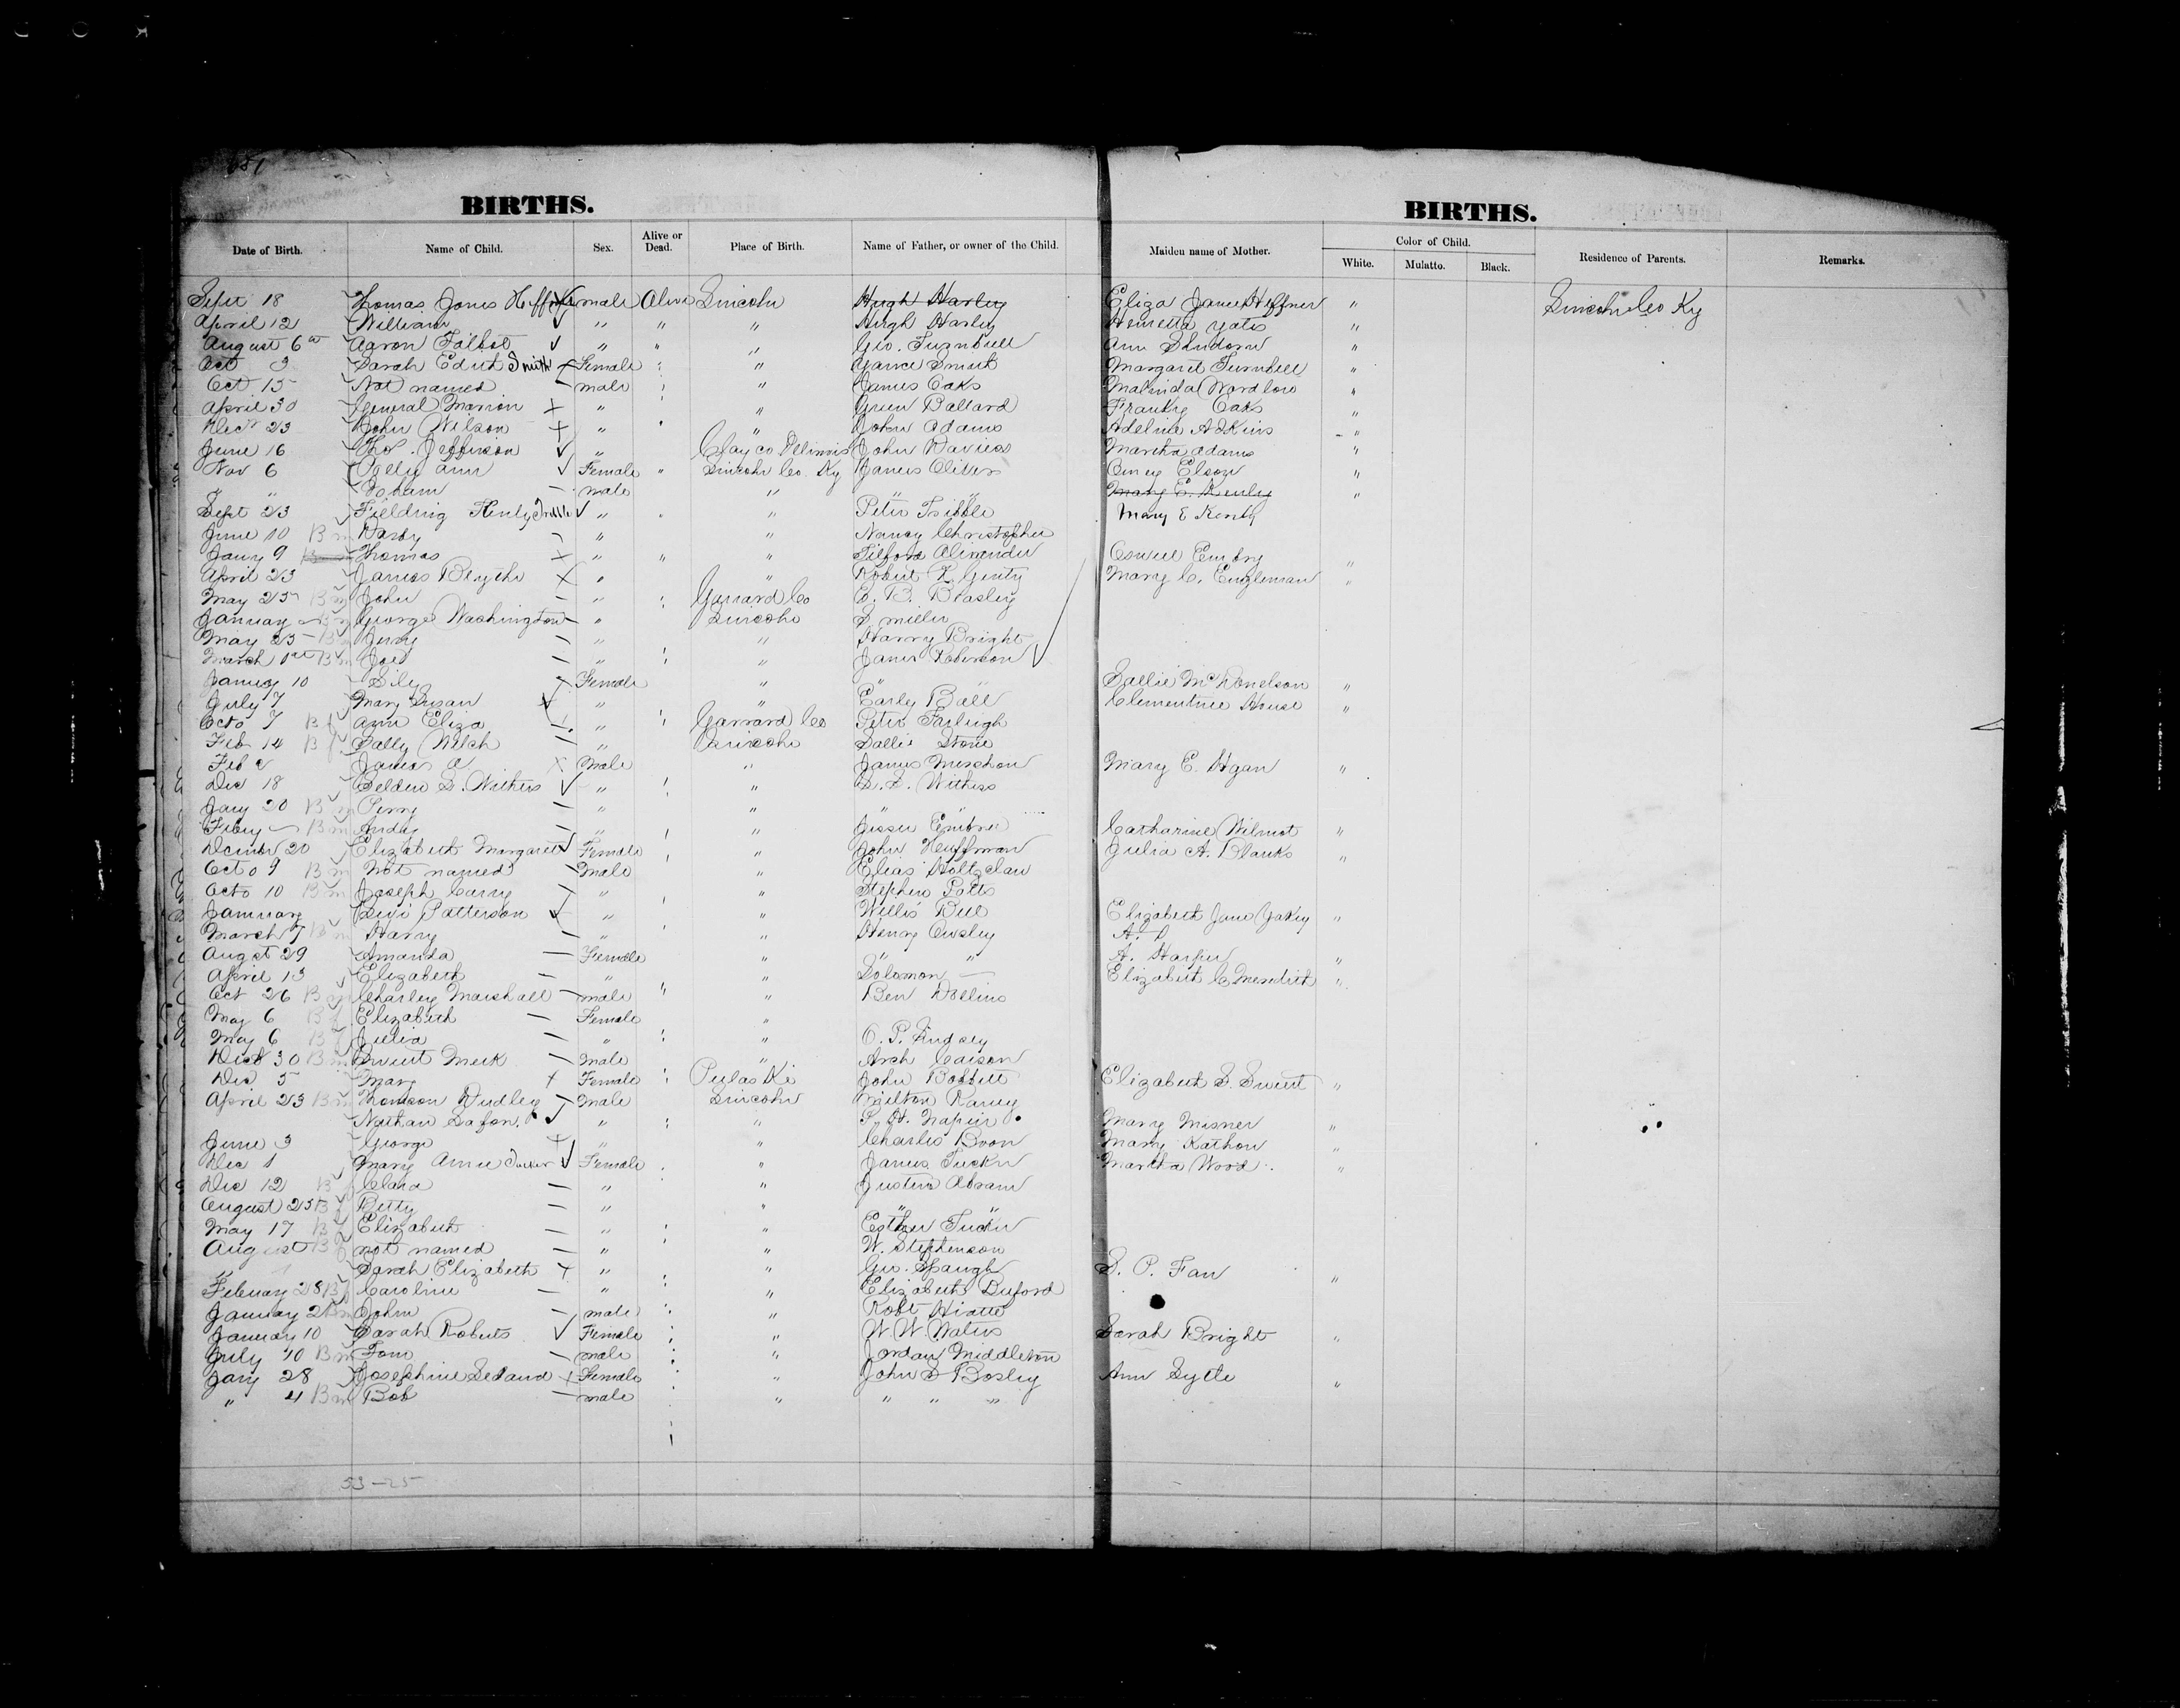 BIRTHS. BIRTHS.
Date of Birth. Name of Child. Sex. Alive or Dead. Place of Birth. Name of Father, or owner of the Child. Maiden name of Mother. Color of Child. White. Mulatto. Black. Residence of Parents. Remarks.
Sept 18 Thomas Jones male Alive Lincoln Hugh Harley Eliza Jane Heffner " Lincoln Co Ky
April 12 William " " " Hugh Harley Henretta Yates "
August 6 Aaron Talbot " " " Geo. Turnbull Ann "
Oct 3 Sarah Edith Smith Female " Yance Smith Margaret Turnbull "
Oct 15 Not named male " James Oaks Malinda Wardlow "
April 30 General Marion " " Green Ballard Franky Oaks "
Dec 23 John Wilson " " John Adams Adeline Adkins "
June 16 Tho. Jefferson " Clay co Illinois John Davies Martha Adams "
Nov 6 Polly Ann Female " Lincoln Co. Ky James Elson "
" " male " " " Mary E. Kenley "
Sept 23 Fielding Kenly Tribble " " Peter Tribble Mary E Kenly
June 10 B m Darby " " Nancy Christopher
Jany 9 Thomas " " " Tilford Alexander Embry "
April 23 James Blythe " " Robert Genty Mary C. Engleman "
May 25 B m John " Garrard Co B. Beasley
January B m George Washington " Lincoln S Miller
May 25 B m Jerry " " Harry Bright
March 1st B m Joe " " James Roberson
January 10 Female " " " Sallie McDonelson "
July 7 Mary Susan " " Early Ball Clementine House "
Octo 7 B f Ann Eliza " Garrard Co Peter Farleigh
Feb 14 B f Sally Welch " Lincoln Sallie Stone
Feb James A Male " James Mershon Mary E. Hgan "
Dec 18 Belden S. Withers " " Withers
Jany 20 B m Perry " " " "
Feby B m Andy " " Jesse Catharine Wilmot "
Decmbr 20 Elizabeth Margaret Female " John Huffman Julia A. Blanks "
Octo 9 B m Not named Male " Elias Holtzclaw
Octo 10 B m Joseph " " Stephen Potts
January Levi Patterson " " Willis Bell Elizabeth Jane Yakey "
March 7 B m Harry " " Henry Owsley
August 29 Amanda Female " " " A. Harper "
April 13 Elizabeth " " Solomon Elizabeth C Meredith "
Oct 26 B Charley Marshall male " Ben
May 6 B f Elizabeth Female "
May 6 B f Julia " " O. P. Lindsey
Dec 30 B m Male " Arch Carson
Dec 5 Mary Female Pulaski John Bobbitt Elizabeth S. Sweet "
April 23 B m Thomson Dudley male Lincoln Milton Raney
Nathan Dafon " " P. H. Napier Mary Misner "
June 3 George " " Charles Boon Mary Kathon "
Dec 1 Mary Anne Tucker Female " James Tucker Martha Wood "
Dec 12 B Clara " " Justin Abram
August 25 B f Betty " " " "
May 17 B f Elizabeth " " Esther Tucker
August B f not named " " W. Stephenson
Sarah Elizabeth " " Geo. Spaugh S. P. Farr "
Febuary 28 B f Caroline " " Elizabeth Buford
January 2 B m John male " Robt Hiatte
January 10 Sarah Roberts Female " W W Waters Sarah Bright "
July 10 B m Tom male " Jordan Middleton
Jany 28 Josephine Female " John S Bosley Ann Lytle "
" 4 B m Bob male " " " "
53-25